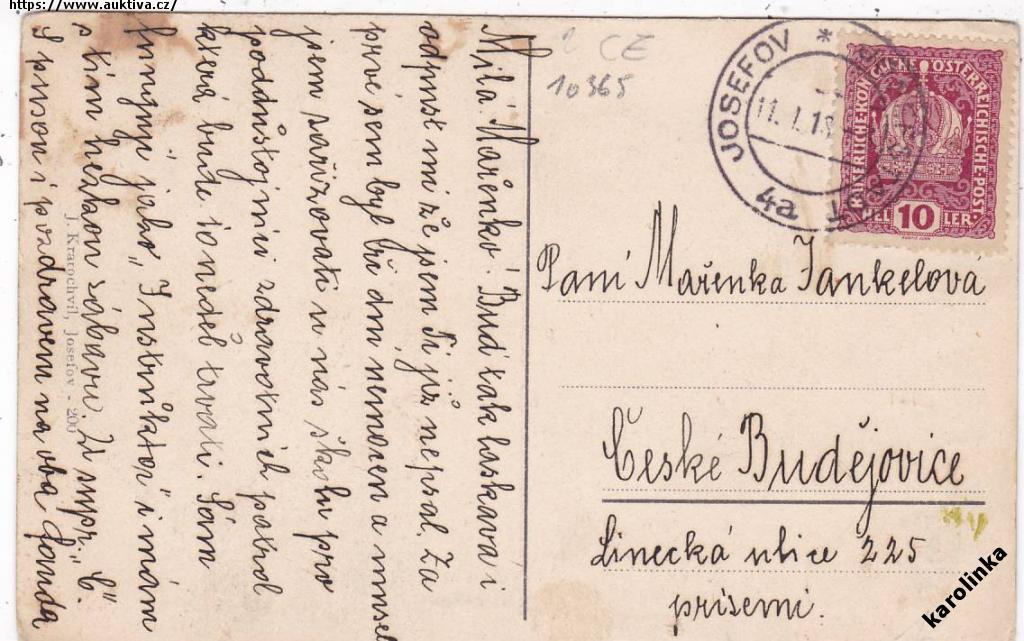 https://www.auktiva.cz/
Milá Mařenko! Buď tak laskavá i
odpusť mi že jsem Ti již nepsal. Za
prvé sem byl tři dni nemocen a musel
jsem sařizovati u nás školu pro
poddůstojníci zdravotních patrol
která bude 10 neděl trvati. Sám
funguji jako „Instruktor" i mám
s tím hezkou zábavu.
S pucou i pozdravem na oba Janda
J. Kratochvíl, Josefov - 200
CE
10365
JOSEFOV
11. I. 18
4a
KAISERLICHE KÖNIGLICHE ÖSTERREICHISCHE POST
HEL 10 LER
Paní Mařenka Jankelová
České Budějovice
Linecká ulice 225
přísemí.
karolinka